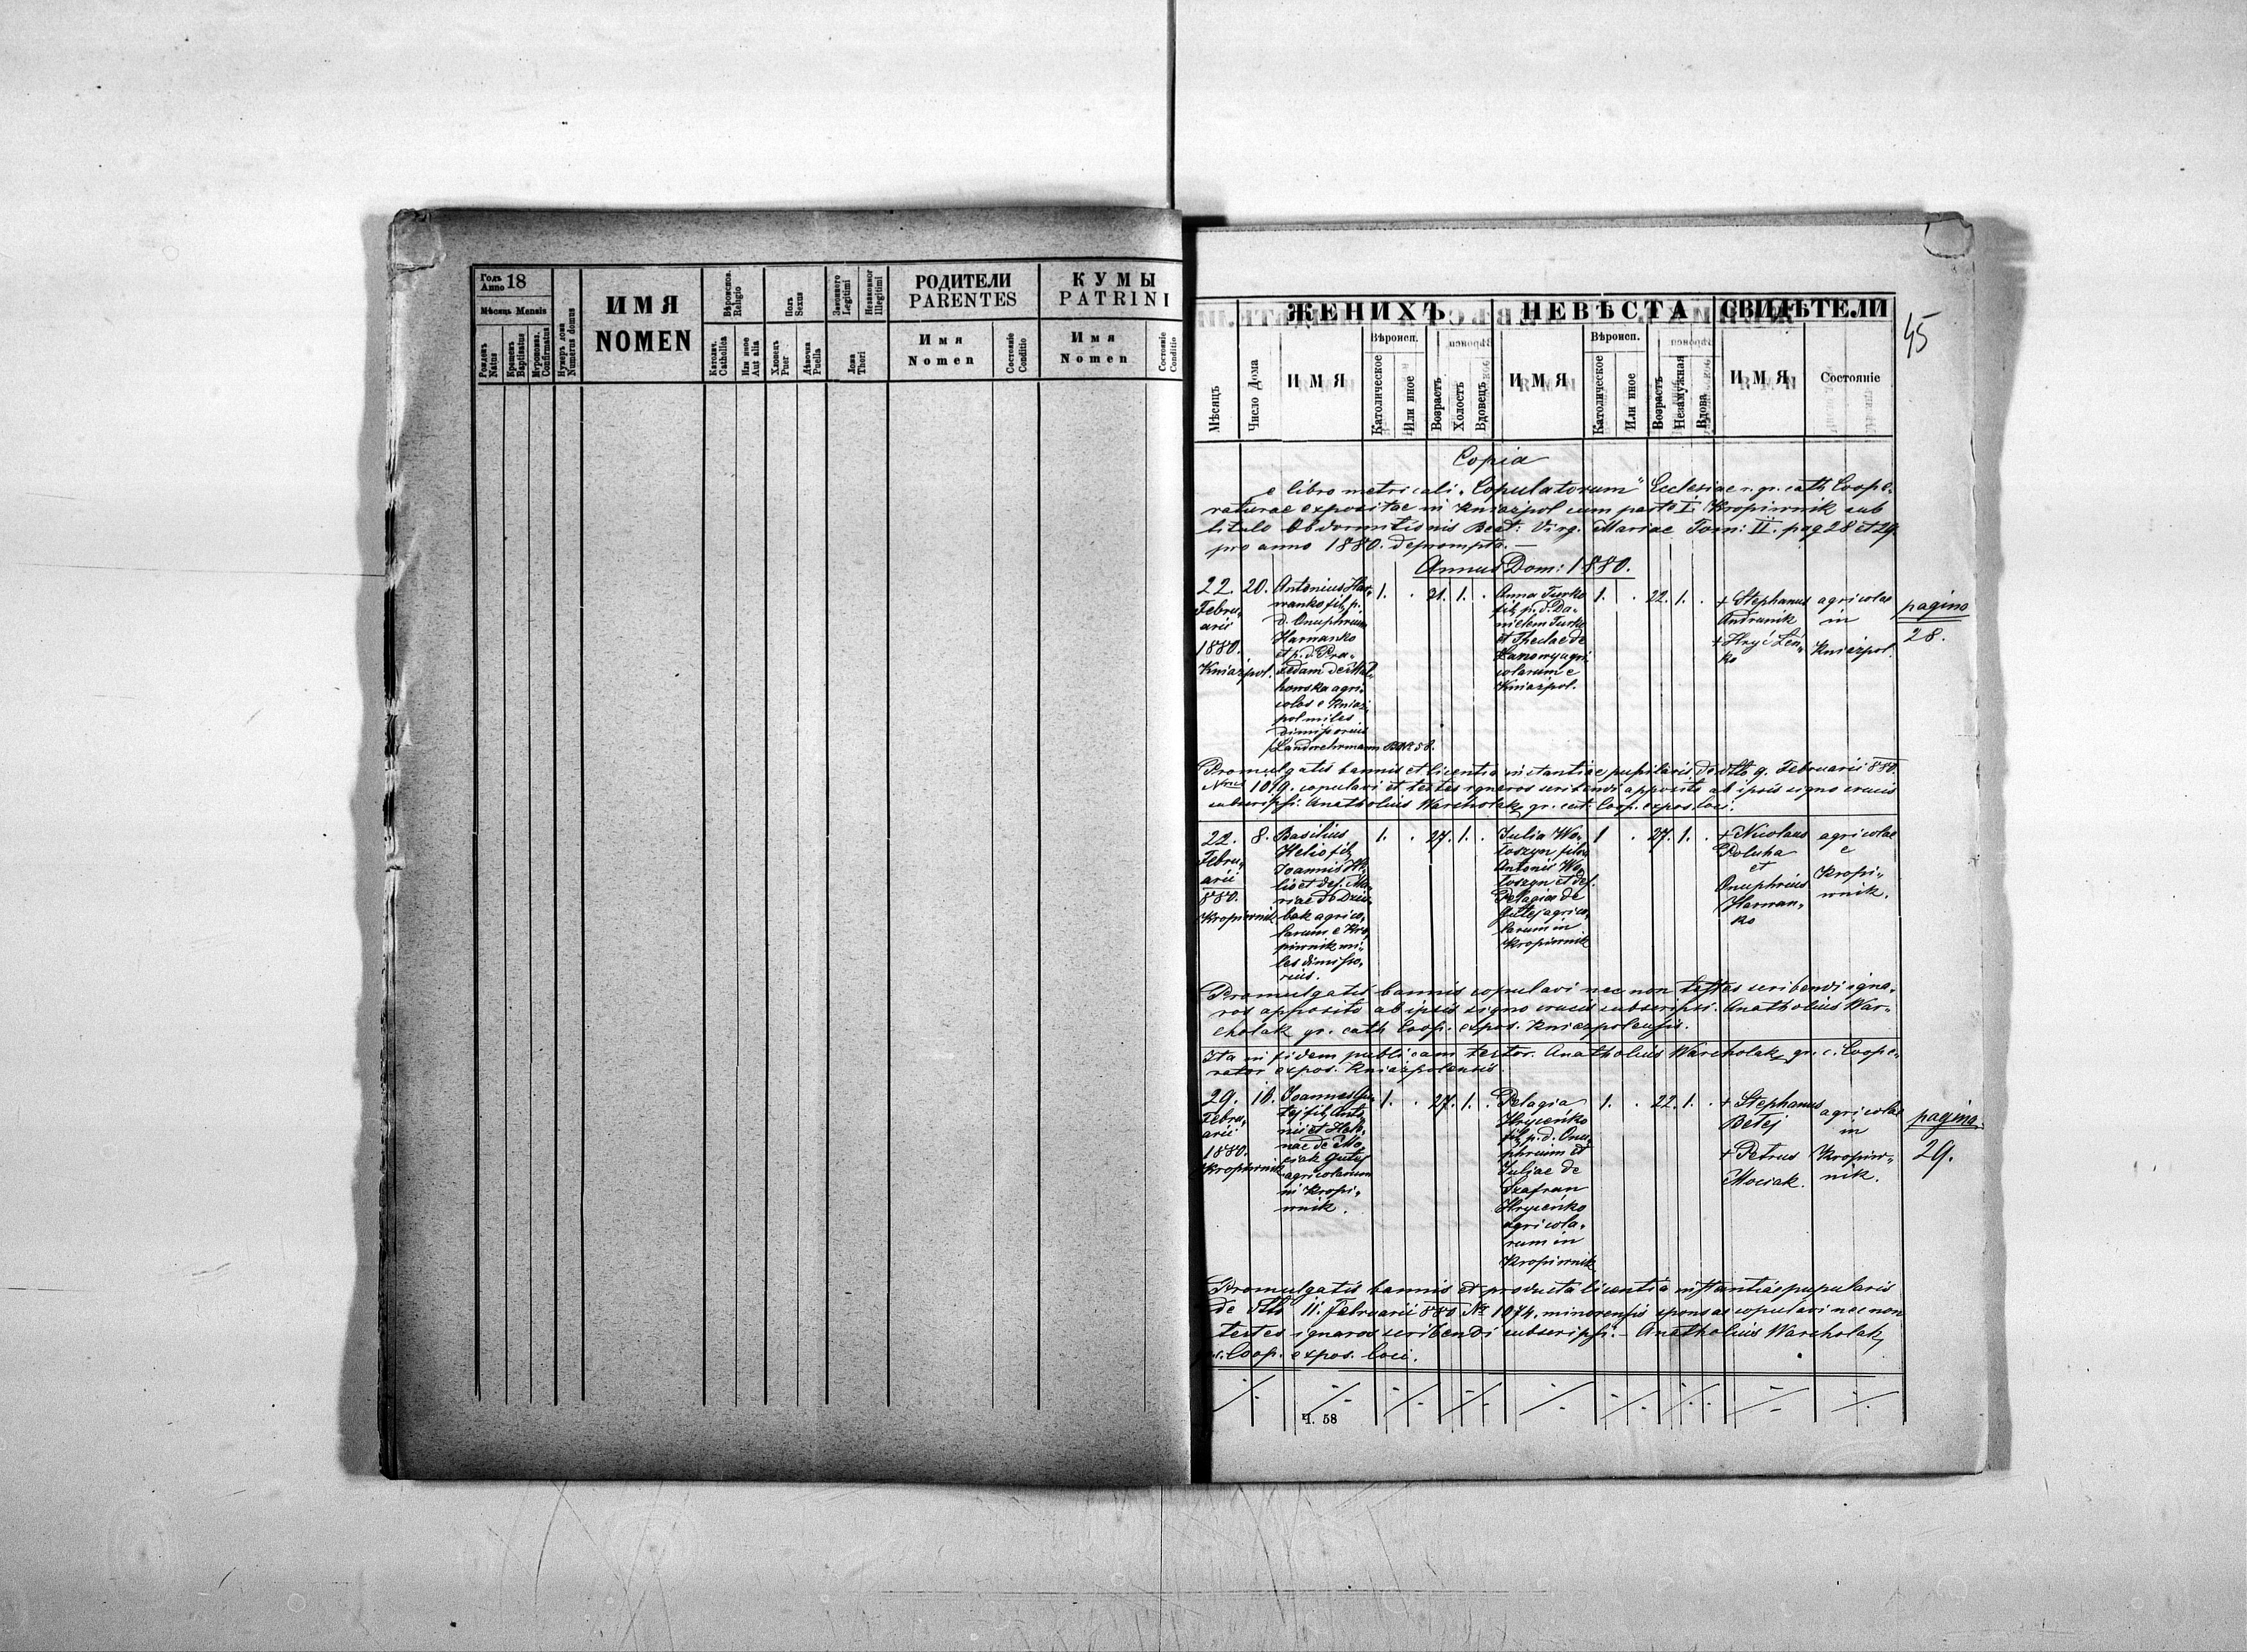 Годъ
Anno 18
Мѣсяць Mensis
Рожденъ
Natus
Крещенъ
Baptisatus
Мѵропомаз.
Confirmatus
Нумеръ дома
Numerus domus
ИМЯ
NOMEN
Вѣроиспов.
Religio
Католич.
Catholica
Или иное
Aut alia
Полъ
Sexus
Хлопець
Puer
Дѣвочка
Puella
Законного
Legitimi
Незаконног
Illegitimi
Ложа
Thori
РОДИТЕЛИ
PARENTES
Имя
Nomen
Состояніе
Conditio
КУМЫ
PATRINI
Имя
Nomen
Состояніе
Conditio
45
ЖЕНИХЪ
НЕВѢСТА
СВИДѢТЕЛИ
Мѣсяць
Число Дома
ИМЯ
Вѣроисп.
Католическое
Или иное
Возрастъ
Холостъ
Вдовецъ
ИМЯ
Вѣроисп.
Католическое
Или иное
Возрастъ
Незамужная
Вдова
ИМЯ
Состояніе
Copia
e libro metricali "Copulatorum" Ecclesiae r. gr. cath Coope-
raturae expositae in Kniazpol cum Kropiwnik sub
titulo Obdormitionis Beat: Virg. Mariae Tom: II. pag 28 et 29.
pro anno 1880. deprompta. —
Annus Dom: 1880.
22.
Febru-
arii
1880.
Kniazpol.
20.
Antonius Har-
manko fil. p.
d. Onuphrium
Harmanko
et p. d. Pra-
xedam de
howska agri-
colas e Kniaz-
pol miles
dimissorius
Landwehrmann
1. . 21. 1. .
Anna Turko
fil. p. d. Da-
nielem Turko
et Theclae de
agri-
colarum e
Kniazpol.
1. . 22. 1. .
+ Stephanus
Andrunik
+ Hryć Łen-
ko
agricolae
in
Kniazpol.
pagina
28.
Promulgatis bannis et licentia instantiae pupilaris de dtto 9. Februarii 880.
Nro 1019. copulavi et testes ignaros scribendi apposito ab ipsis signo crucis
subscripsi: Anatholius Warcholak, gr. cat. Coop. expos. loci.
22.
Febru-
arii
880.
Kropiwnik
8.
Basilius
Helio fil.
Joannis He-
lio et def. Ma-
riae de Dziu-
bak agrico-
larum e Kro-
piwnik mi-
les dimisso-
rius.
1. . 27. 1. .
Julia Wo-
łoszyn filia
Antonii Wo-
łoszyn et def.
Pelagiae de
Gutej agrico-
larum in
Kropiwnik
1 . 27. 1. .
+ Nicolaus
Poluha
et
Onuphrius
Harman-
ko
agricolae
e
Kropi-
wnik.
Promulgatis bannis copulavi nec non testes scribendi igna-
ros apposito ab ipsis signo crucis subscripsi. Anatholius War-
cholak gr. cath Coop. expos. Kniazpolensis.
Ita in fidem publicam testor. Anatholius Warcholak, gr. c. Coope-
rator expos. Kniazpolensis.
29.
Febru-
arii
1880.
Kropiwnik
16.
Joannes Gu-
tej fil. Anto-
nii et Hele-
nae de Mo-
ciak Gutej
agricolarum
in Kropi-
wnik.
1. . 27. 1. .
Pelagia
Hryceńko
fil. p. d. Onu-
phrium et
Juliae de
Szafran
Hryceńko
agricola-
rum in
Kropiwnik
1. . 22. 1. .
+ Stephanus
Betej
+ Petrus
Mociak.
agricolae
in
Kropiw-
nik.
pagina
29.
Promulgatis bannis et producta licentia instantiae pupularis
de dtto 11. Februarii 880 No 1074. minorensis sponsae copulavi nec non
testes ignaros scribendi subscripsi. — Anatholius Warcholak,
Coop. expos. loci.
Ч. 58